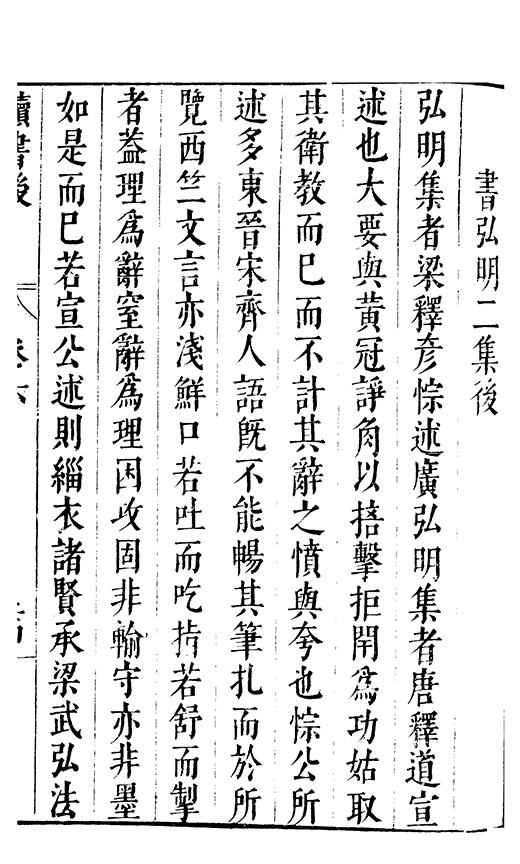 書弘明二集後
弘明集者梁釋彥悰述廣弘明集者唐釋道宣
述也大要與黃冠諍角以掊擊拒閉爲功姑取
其衛教而已而不計其辭之憤與夸也悰公所
述多東晉宋齊人語旣不能暢其筆扎而於所
覽西竺文言亦淺鮮口若吐而吃指若舒而掣
者葢理爲辭窒辭爲理困攻固非輸守亦非墨
如是而已若宣公述則緇衣諸賢承梁武弘法
讀書後 卷六